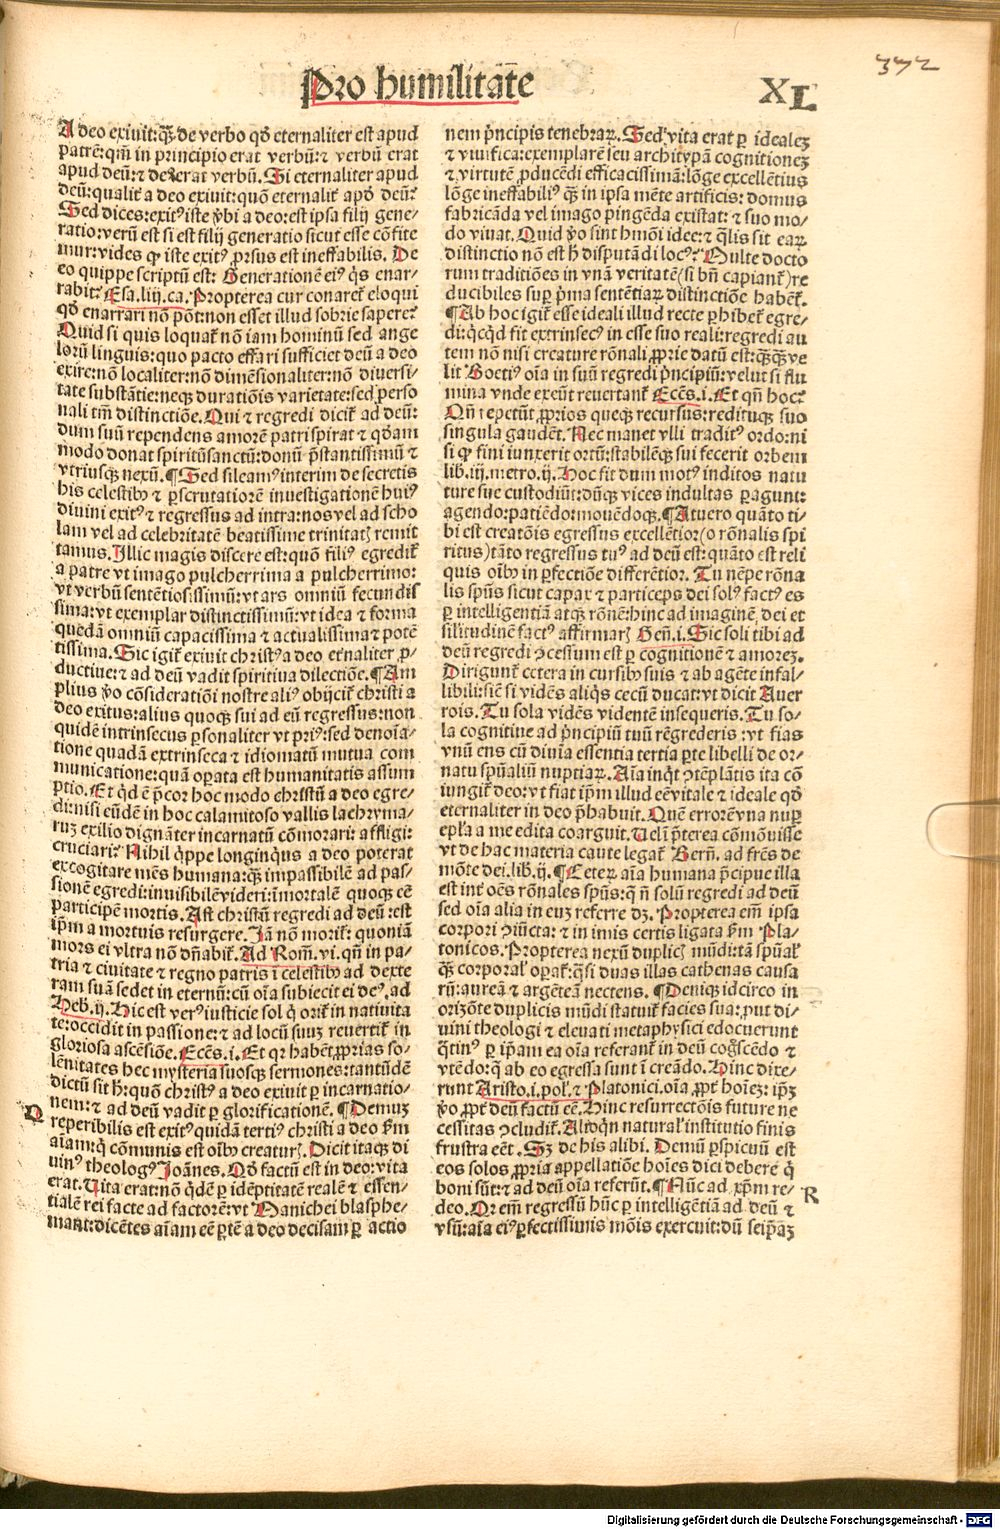 372
Pro humilitate̅
XL
A deo exiuit: qꝫ de verbo qđ eternaliter est apud
patrē: qm̄ in principio erat verbū: ⁊ verbū erat
apud deū: ⁊ de erat verbū. Si eternaliter apud
deū: qualit̄ a deo exiuit: quō eternalit̄ apđ deū?
Sed dices: exitꝰ iste v̄bi a deo: est ipsa filij gene/
ratio: verū est si est filij generatio sicut esse cōfite
mur: vides ꝙ iste exitꝰ ꝓrsus est ineffabilis. De
eo quippe scriptū est: Generationē eiꝰ q̇s enar/
rabit? Esa. liij. ca. Propterea cur conaret̄ eloqui
qđ enarrari nō pōt: non esset illud sobrie sapere?
Quid si quis loquat̄ nō iam hominū sed ange
lorū linguis: quo pacto effari sufficiet deū a deo
exire: nō localiter: nō dimēsionaliter: nō diuersi/
tate substātie: neqꝫ durationis varietate: sed ꝑso
nali tm̄ distinctiōe. Qui ⁊ regredi dicit̄ ad deū:
dum suū rependens amorē patri spirat ⁊ qđam
modo donat spiritūsanctū: donū p̄stantissimū ⁊
vtriusqꝫ nexū. ¶ Sed sileamꝰ interim de secretis
his celestibꝫ ⁊ ꝑscrutatiorē inuestigationē huiꝰ
diuini exitꝰ ⁊ regressus ad intra: nos vel ad scho
lam vel ad celebritatē beatissime trinitatꝭ remit
tamus. Illic magis discere est: quō filiꝰ egredit̄
a patre vt imago pulcherrima a pulcherrimo:
vt verbū sentētiosissimū: vt ars omniū fecundis
sima: vt exemplar distinctissimū: vt idea ⁊ forma
quedā omniū capacissima ⁊ actualissima ⁊ potē
tissima. Sic igit̄ exiuit christꝰ a deo et̄naliter ꝓ/
ductiue: ⁊ ad deū vadit spiritiua dilectiōe. ¶ Am
plius v̄o cōsideratiōi nostre aliꝰ obijcit̄ christi a
deo exitus: alius quoqꝫ sui ad eū regressus: non
quidē intrinsecus ꝑsonaliter vt priꝰ: sed denoīa/
tione quadā extrinseca ⁊ idiomatū mutua com
municatione: quā oꝑata est humanitatis assum
ptio. Et q̇d ē p̄cor hoc modo christū a deo egre/
di: nisi eūdē in hoc calamitoso vallis lachryma/
rum exilio dignāter incarnatū cōmorari: affligi:
cruciari? Nihil q̇ppe longinq̇us a deo poterat
excogitare mēs humana: qꝫ impassibilē ad pas/
sionē egredi: inuisibilē videri: īmortalē quoqꝫ eē
participē mortis. Ast christū regredi ad deū: est
ip̄m a mortuis resurgere. Iā nō morit̄: quoniā
mors ei vltra nō dn̄abit̄. Ad Rom̄. vi. qn̄ in pa/
tria ⁊ ciuitate ⁊ regno patris ī celestibꝫ ad dexte
ram suā sedet in eternū: cū oīa subiecit ei deꝰ. ad
Heb. ij. Hic est verꝰ iusticie sol q̇ orit̄ in natiuita
te: occidit in passione: ⁊ ad locū suuꝫ reuertit̄ in
gloriosa ascēsiōe. Ecēs. i. Et qꝛ habēt ꝓprias so/
lēnitates hec mysteria suosqꝫ sermones: tantūdē
dictū sit h̄: quō christꝰ a deo exiuit ꝑ incarnatio/
nem: ⁊ ad deū vadit ꝑ glorificationē. ¶ Demuꝫ
Q
reperibilis est exitꝰ quidā tertiꝰ christi a deo ẜm
aīam: q̇ cōmunis est oībꝫ creaturꝭ. Dicit itaqꝫ di
uinꝰ theologꝰ Joānes. Qđ factū est in deo: vita
erat. Uita erat: nō q̇dē ꝑ idēptitatē realē ⁊ essen/
tialē rei facte ad factorē: vt Manichei blasphe/
mant: dicētes aīam eē ꝑtē a deo decisam ꝑ actio
nem p̄ncipis tenebraꝝ. Sed vita erat ꝑ idealeꝫ
⁊ viuifica: exemplarē seu archityṗā cognitioneꝫ
⁊ virtutē ꝓducēdi efficacissimā: lōge excellētius
lōge ineffabiliꝰ qꝫ in ipsa mēte artificis: domus
fabricāda vel imago pingēda existat: ⁊ suo mo/
do viuat. Quid v̄o sint hmōi idee: ⁊ q̄lis sit eaꝝ
distinctio nō est h̄ disputādi locꝰ? Multe docto
rum traditiōes in vnā veritatē (si bn̄ capiant̄) re
ducibiles suꝑ p̄ma sententiaꝝ distinctiōe habēt̄.
¶ Ab hoc igit̄ esse ideali illud recte ꝑhibet̄ egre/
di: q̇cq̇d fit extrinsecꝰ in esse suo reali: regredi au
tem nō nisi creature rōnali ꝓprie datū est: qꝫqꝫ ve
lit Boetiꝰ oīa in suū regredi p̄ncipiū: velut si flu
mina vnde exeūt reuertant̄ Ecēs. i. Et qn̄ hoc?
Qn̄ repetūt ꝓprios queqꝫ recursus: redituqꝫ suo
singula gaudēt. Nec manet vlli traditꝰ ordo: ni
si ꝙ fini iunxerit ortū: stabilēqꝫ sui fecerit orbem
lib. iij. metro. ij. Hoc fit dum motꝰ inditos natu
ture sue custodiūt: dūqꝫ vices indultas ꝑagunt:
agendo: patiēdo: mouēdoqꝫ. ¶ At vero quāto ti/
bi est creatōis egressus excellētior (o rōnalis spi
ritus) tāto regressus tuꝰ ad deū est: quāto est reli
quis oībꝫ in ꝑfectiōe differētior. Tu nēpe rōna
lis spūs sicut capax ⁊ particeps dei solꝰ factꝰ es
ꝑ intelligentiā atqꝫ rōnē: hinc ad imaginē dei et
sil̄itudinē factꝰ affirmarꝭ Gen̄. i. Sic soli tibi ad
deū regredi ꝯcessum est ꝑ cognitionē ⁊ amoreꝫ.
Dirigunt̄ cetera in cursibꝫ suis ⁊ ab agēte infal/
libili: siē si vidēs aliq̇s cecū ducat: vt dicit Auer
rois. Tu sola vidēs videntē insequeris. Tu so/
la cognitiue ad p̄ncipiū tuū regrederis: vt fias
vnū ens cū diuīa essentia tertia ꝑte libelli de or/
natu spūaliū nuptiaꝝ. Aīa inq̇t ꝯtēplātis ita cō
iungit̄ deo: vt fiat ip̄m illud eē vitale ⁊ ideale qđ
eternaliter in deo p̄habuit. Quē errorē vna nuꝑ
epl̄a a me edita coarguit. Uelī p̄terea cōmōuisse
vt de hac materia caute legat̄ Bern̄. ad fr̄es de
mōte dei. lib. ij. ¶ Ceteꝝ aīa humana p̄cipue illa
est int̄ oēs rōnales spūs: q̄ n̄ solū regredi ad deū
sed oīa alia in euꝫ referre dꝫ. Propterea em̄ ipsa
corpori ꝯiūcta: ⁊ in imis certis ligata ẜm Pla/
tonicos. Propterea nexū duplicꝭ mūdi: tā spūal̄
qꝫ corporal̄ oꝑat̄: q̄si duas illas cathenas causa
rū: aureā ⁊ argēteā nectens. ¶ Deniqꝫ idcirco in
orizōte duplicis mūdi statuit̄ facies sua: put di/
uini theologi ⁊ eleuati metaphysici edocuerunt
q̇tinꝰ ꝑ ip̄am ea oīa referant̄ in deū cogn̄scēdo ⁊
vtēdo: q̄ ab eo egressa sunt ī creādo. Hinc dixe/
runt Aristo. i. pol̄. ⁊ Platonici. oīa ꝓpt̄ hoīeꝫ: ip̄ꝫ
v̄o ꝓpt̄ deū factū eē. Hinc resurrectōis future ne
cessitas ꝯcludit̄. Alioqn̄ natural̄ institutio finis
frustra eēt. Sꝫ de his alibi. Demū ꝑspicuū est
eos solos ꝓpria appellatiōe hoīes dici debere q̇
boni sūt: ⁊ ad deū oīa referūt. ¶ Nūc ad xp̄m re/
R
deo. Qr em̄ regressū hūc ꝑ intelligētiā ad deū ⁊
vsū: aīa eiꝰ ꝑfectissimis mōis exercuit: dū seip̄aꝫ
Digitalisierung gefördert durch die Deutsche Forschungsgemeinschaft - DFG